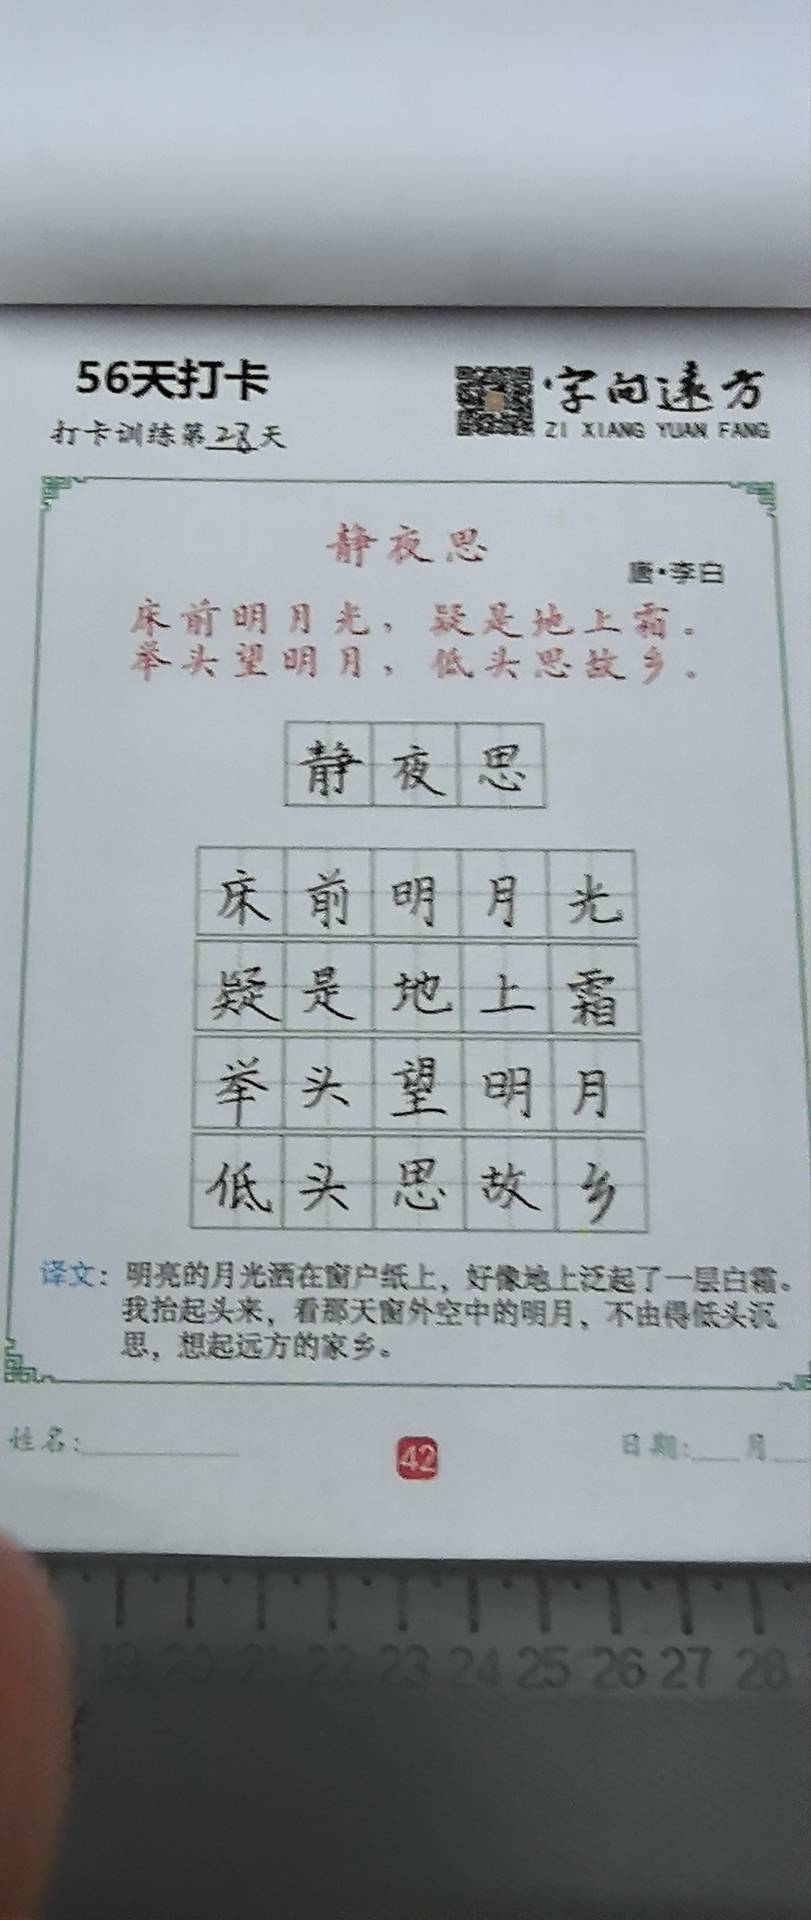 56天打卡
打卡训练第28天
字向远方
ZI XIANG YUAN FANG
静夜思
唐·李白
床前明月光，疑是地上霜。
举头望明月，低头思故乡。
静夜思
床前明月光
疑是地上霜
举头望明月
低头思故乡
译文：明亮的月光洒在窗户纸上，好像地上泛起了一层白霜。
我抬起头来，看那天窗外空中的明月，不由得低头沉
思，想起远方的家乡。
姓名：
42
日期： 月
19 20 21 22 23 24 25 26 27 28